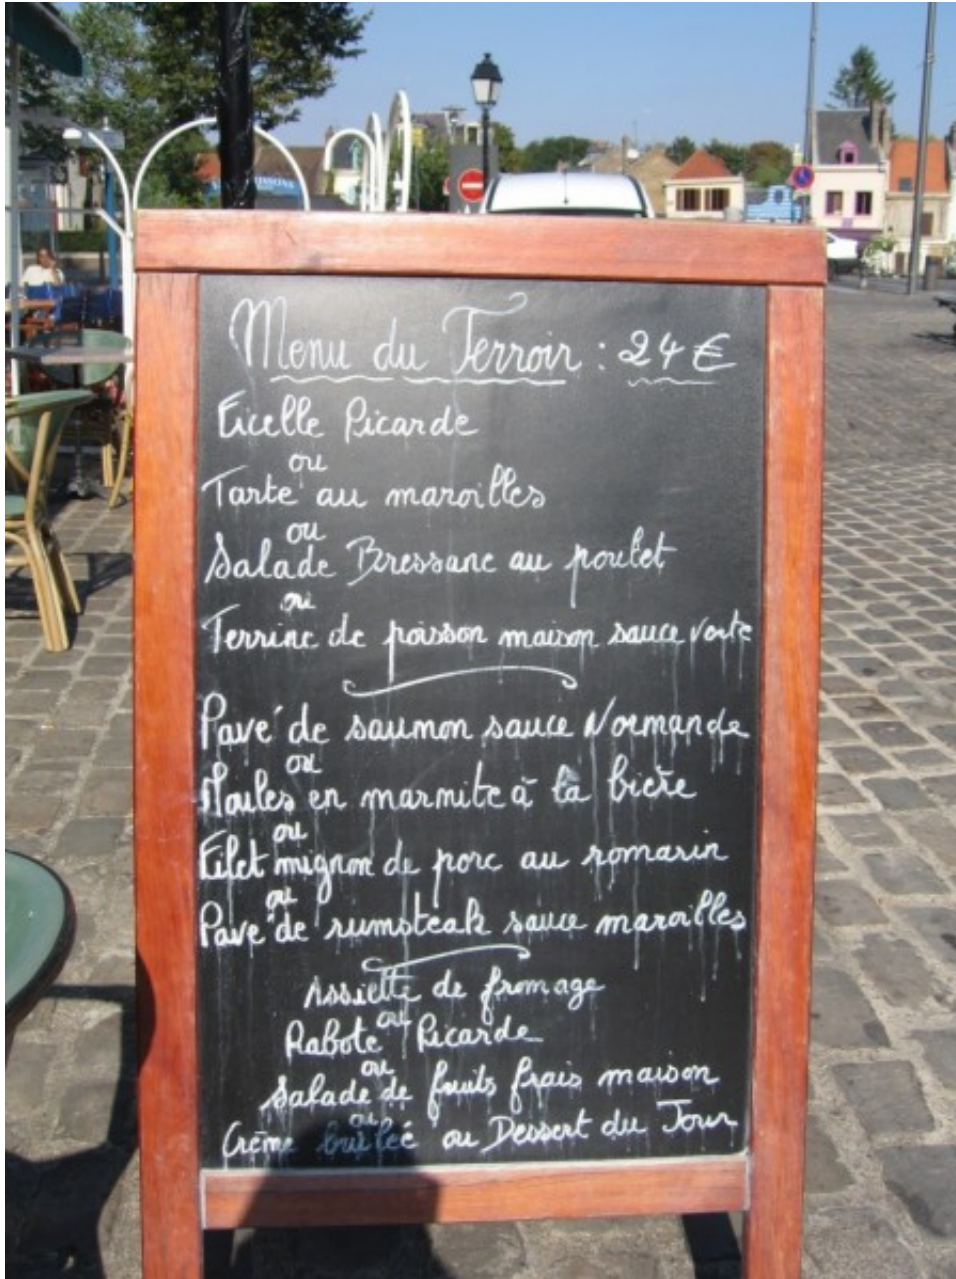 Menu du Terroir : 24 €
Ficelle Picarde
ou
Tarte au maroilles
ou
Salade Bressane au poulet
ou
Terrine de poisson maison sauce verte
Pavé de saumon sauce Normande
ou
Moules en marmite à la bière
ou
Filet mignon de porc au romarin
ou
Pavé de rumsteak sauce maroilles
Assiette de fromage
ou
Rabote Picarde
ou
Salade de fruits frais maison
ou
Crème bruleé ou Dessert du Jour